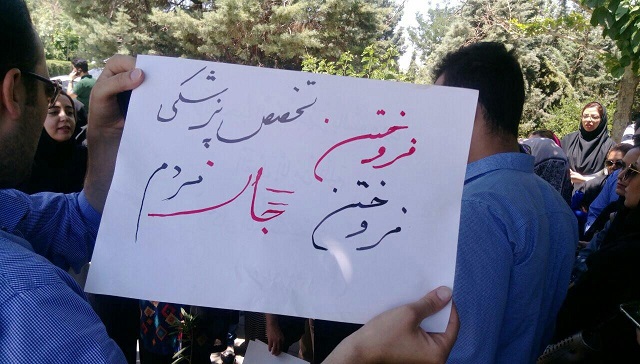 فروختن تخصص پزشکی
فروختن جان مردم